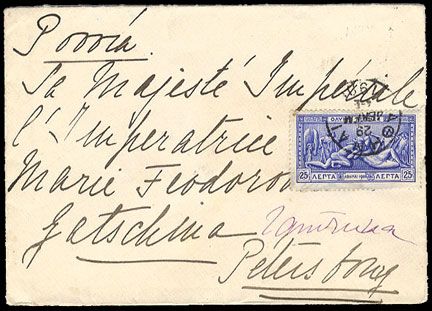 Ρωσσία.
Sa Majesté Impériale
l'Impératrice
Marie Feodorow
Gatschina
Petersbourg
ΟΛΥ
25 ΛΕΠΤΑ ΛΕΠΤΑ 25
29